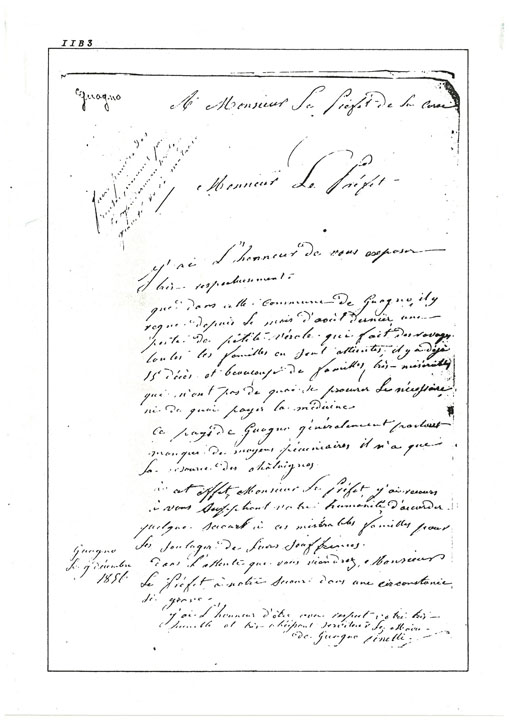 IIB3
Guagno
A Monsieur Le Préfet de la Corse
Monsieur Le Préfet
J'ai L'honneur de vous exposer
très respectueusement
que dans cette Commune de Guagno, il y
regne depuis Le mois d'août dernier une
de petite vérole qui fait des ravages
toutes les familles en sont atteintes, il y a déjà
15 décès et beaucoup de familles, très misérables
qui n'ont pas de quoi se procurer Le nécessaire
ni de quoi payer la médicine
Ce pays de Guagno généralement pauvre
manque de moyens pécuniaires il n'a que
La resource des châtaignes
à cet effet, Monsieur Le Préfet, j'ai recours
à vous suppliant votre humanité d'accorder
quelque secours à ces misérables familles pour
Les soulager de Leurs souffrances.
Dans L'attente que vous viendrez, Monsieur
Le Préfet à notre secours dans une circonstance
si grave
j'ai L'honneur d'être avec respect votre très
humble et très obéissant serviteur Le Maire
de Guagno
Guagno
Le 9 décembre